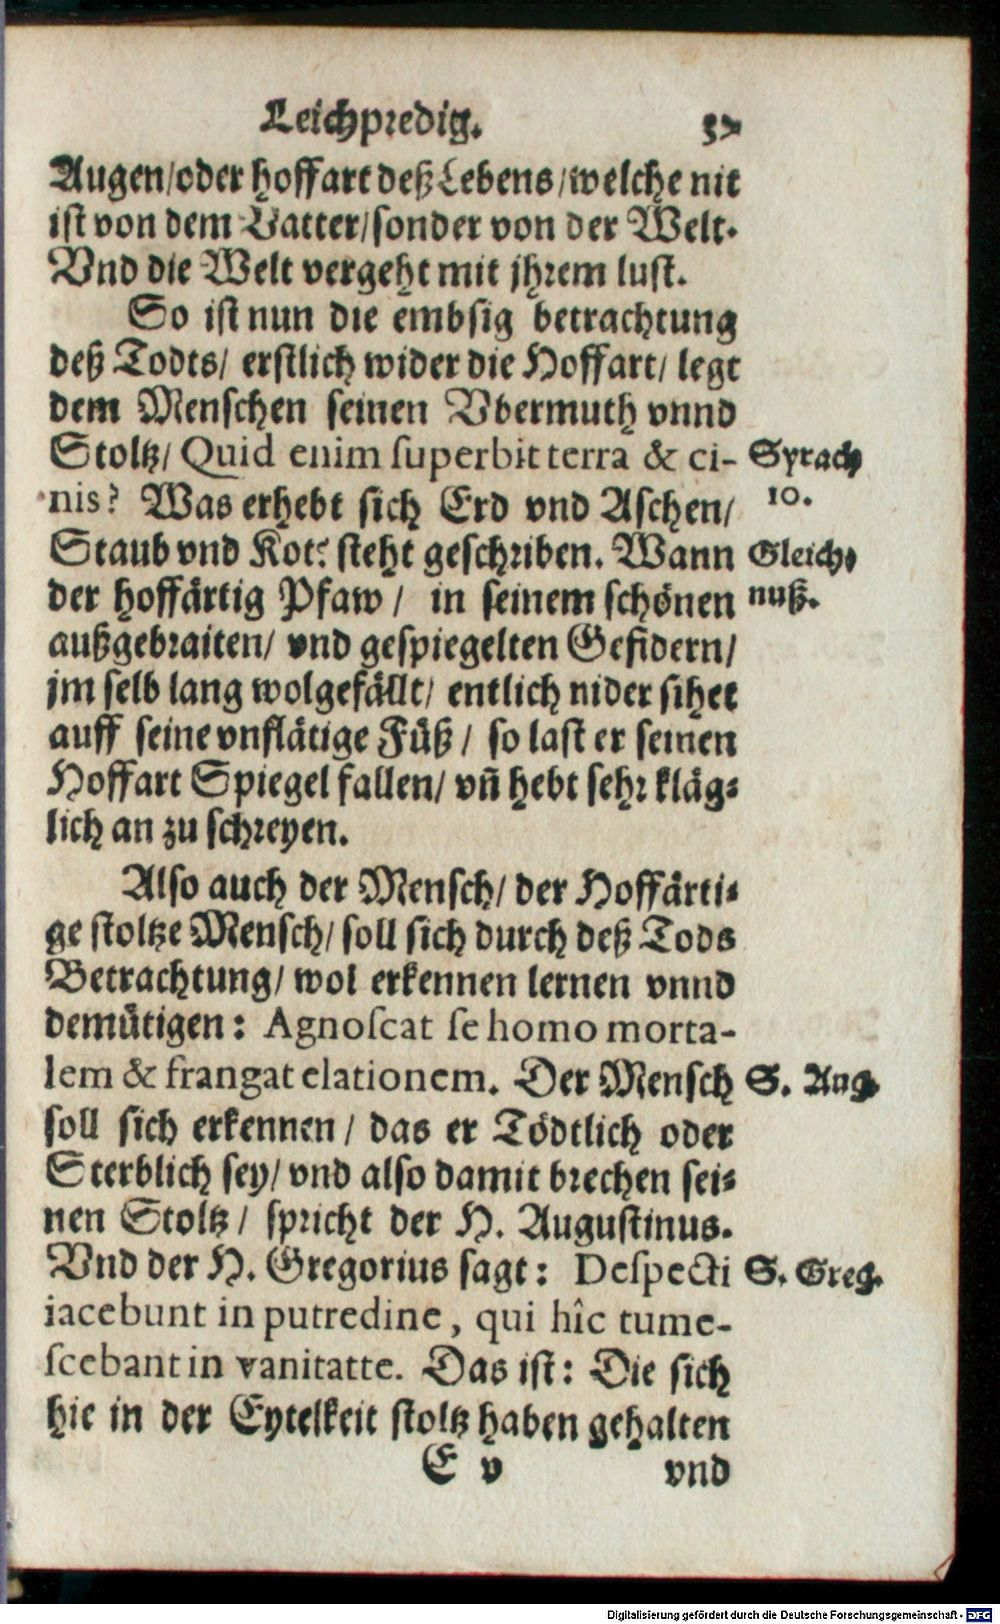 Leichpredig.
Augen/oder hoffart deß Lebens/welche nit
ist von dem Vatter/sonder von der Welt.
Vnd die Welt vergeht mit jhrem lust.
So ist nun die embsig betrachtung
deß Todts/ erstlich wider die Hoffart/ legt
dem Menschen seinen Vbermuth vnnd
Stoltz/ Quid enim superbit terra & ci- Syrach
nis? Was erhebt sich Erd vnd Aschen/ 10.
Staub vnd Kot? steht geschriben. Wann Gleich-
der hoffärtig Pfaw/ in seinem schönen nuß.
außgebraiten/ vnd gespiegelten Gefidern/
jm selb lang wolgefällt/ entlich nider sihet
auff seine vnflätige Füß/ so last er seinen
Hoffart Spiegel fallen/ vñ hebt sehr kläg-
lich an zu schreyen.
Also auch der Mensch/ der Hoffärti-
ge stoltze Mensch/ soll sich durch deß Tods
Betrachtung/ wol erkennen lernen vnnd
demütigen: Agnoscat se homo morta-
lem & frangat elationem. Der Mensch S. Aug.
soll sich erkennen/ das er Tödtlich oder
Sterblich sey/ vnd also damit brechen sei-
nen Stoltz/ spricht der H. Augustinus.
Vnd der H. Gregorius sagt: Despecti S. Greg.
iacebunt in putredine, qui hîc tume-
scebant in vanitatte. Das ist: Die sich
hie in der Eytelkeit stoltz haben gehalten
E v vnd
Digitalisierung gefördert durch die Deutsche Forschungsgemeinschaft - DFG